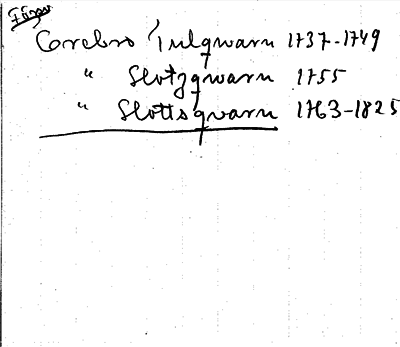 Örebro Tulqwarn 1737-1749
" Slotzqwarn 1755
" Slottsqvarn 1763-1825